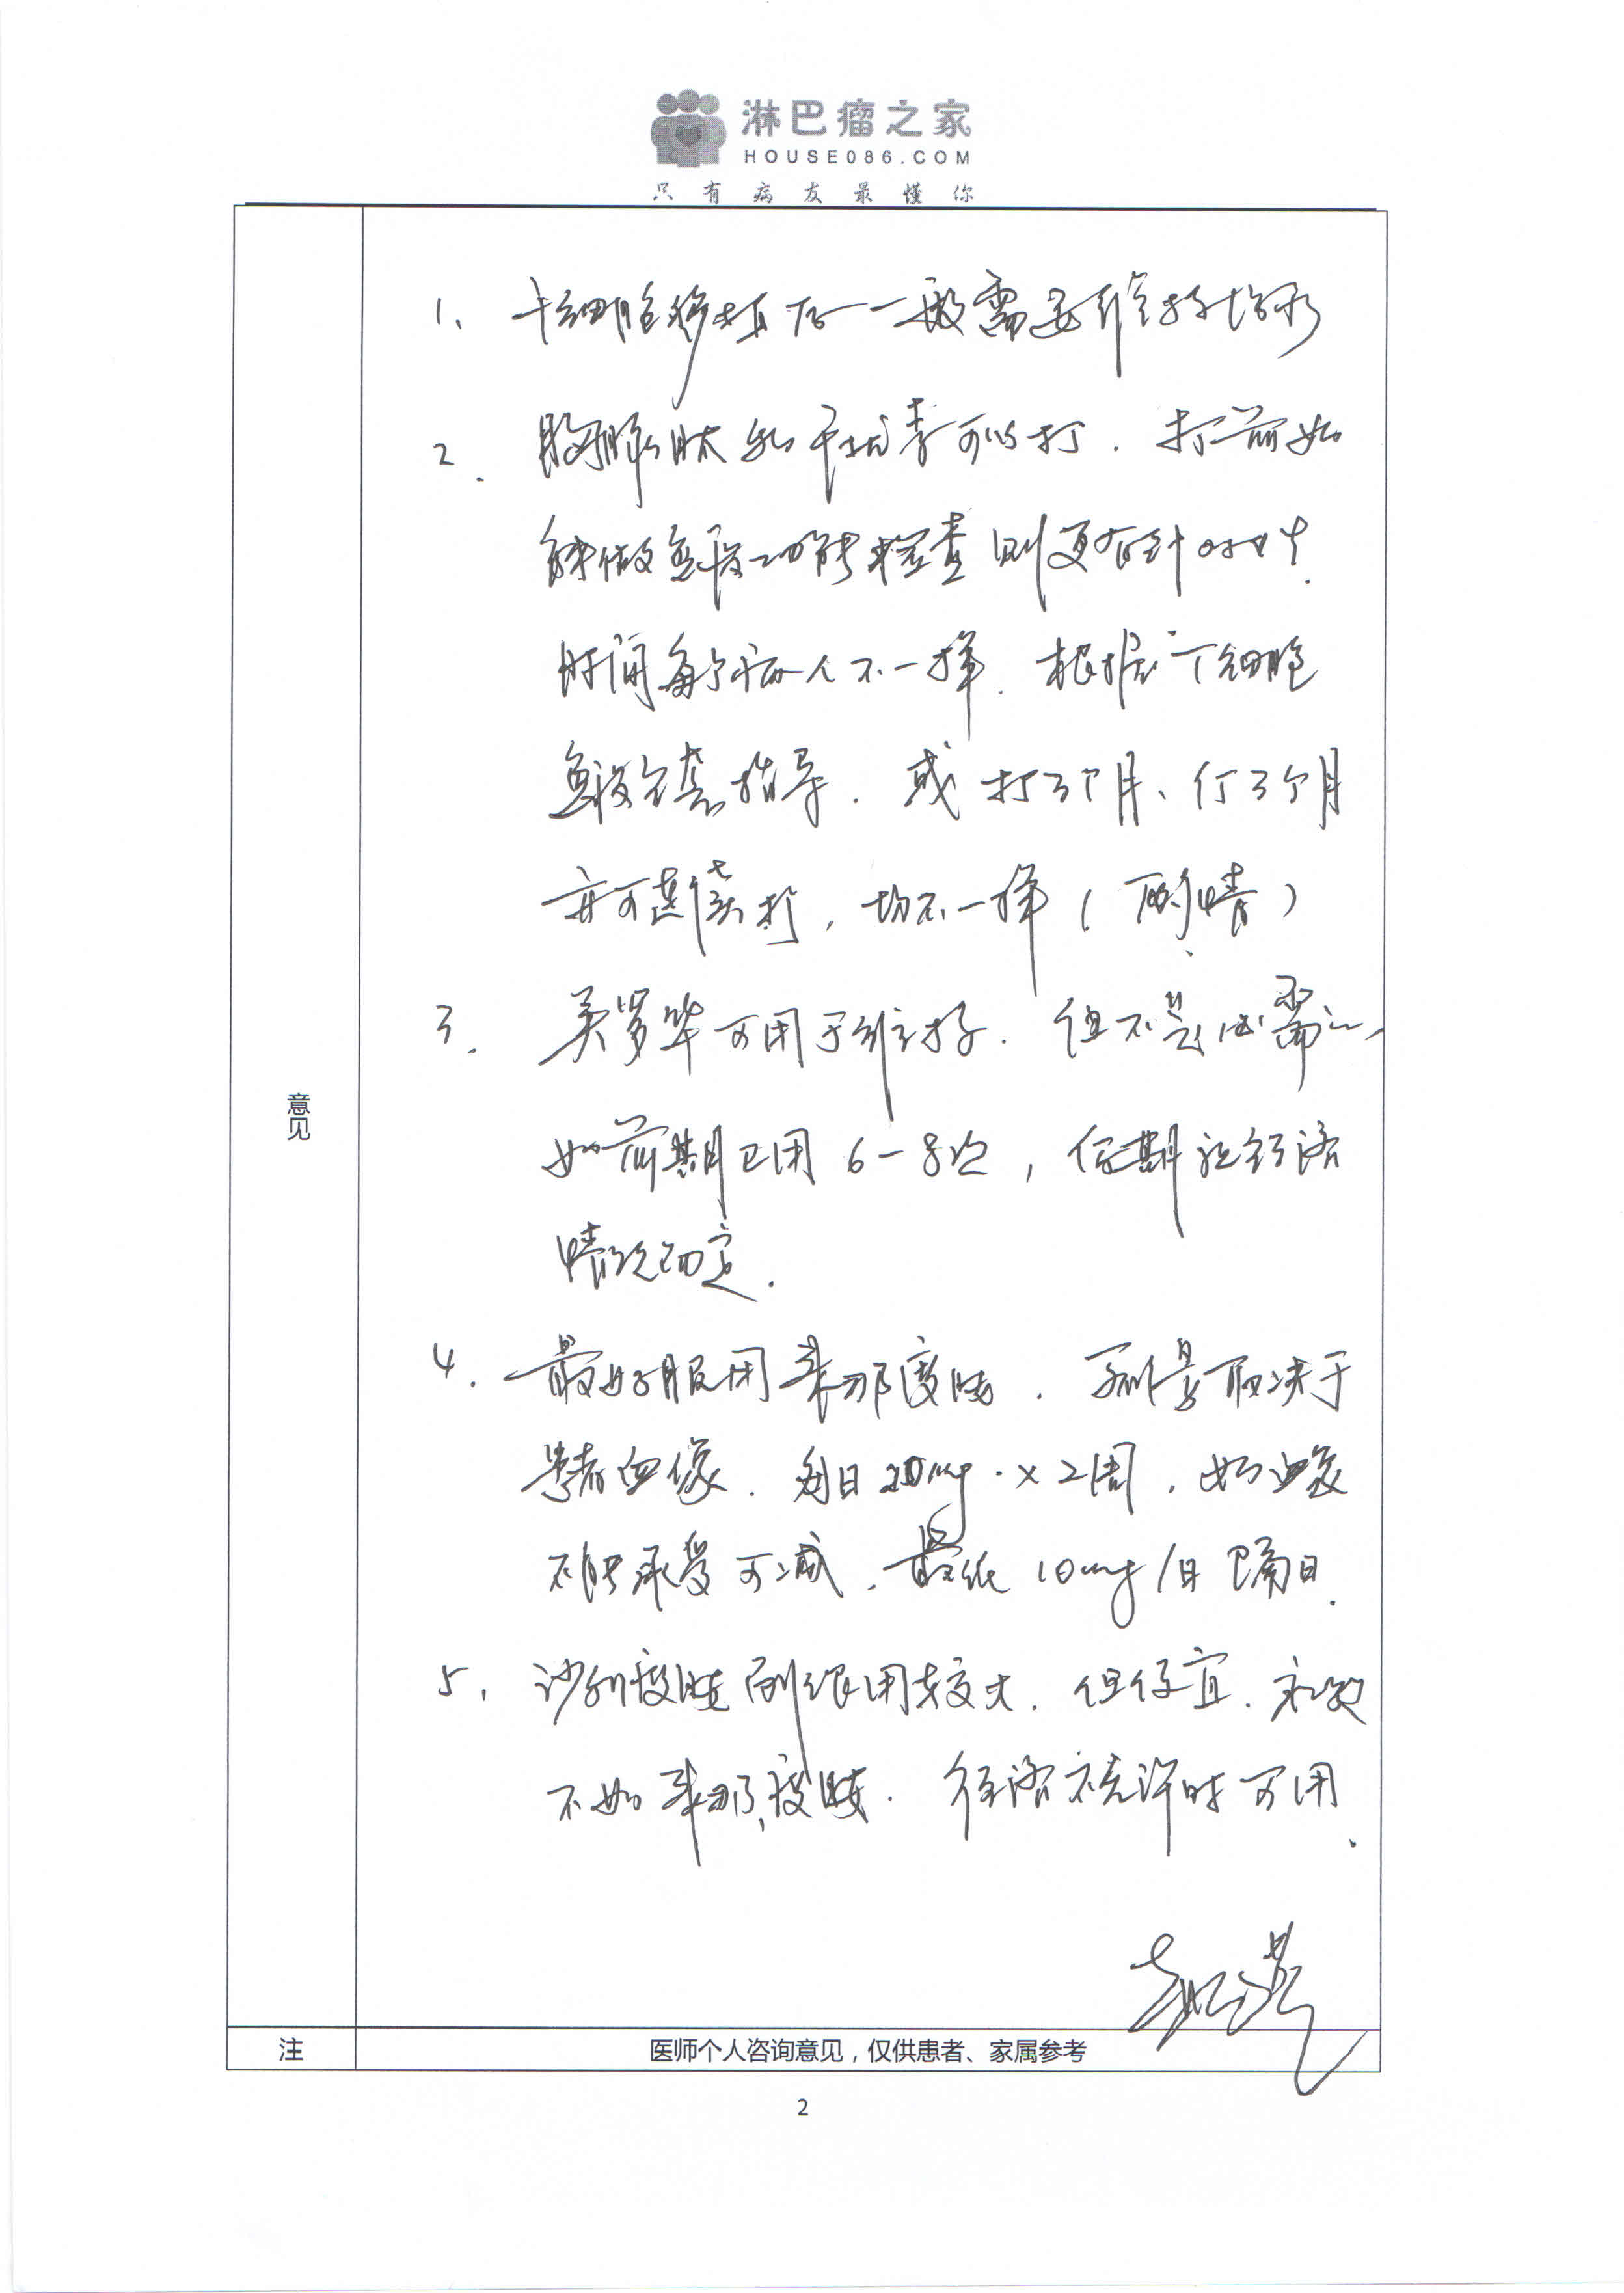 淋巴瘤之家
HOUSE086.COM
只有病友最懂你
1、干细胞移植后一般需要维持治疗
2. 胸腺肽和干扰素可以打. 打前如
能做免疫功能检查则更有针对性.
时间每个病人不一样. 根据T细胞
免疫全套指导. 或打3个月、停3个月
亦可连续打, 均不一样(酌情)
3. 美罗华可用于维持. 但不是必需
如前期已用6-8次, 后期视经济
情况而定.
4. 最好服用来那度胺. 剂量取决于
患者血像. 每日20mg.×2周, 如血象
不能承受可减, 最低10mg/日 隔日.
5. 沙利度胺 用较大. 但便宜.
不如来那度胺. 经济不允许时可用.
意见
注
医师个人咨询意见,仅供患者、家属参考
2